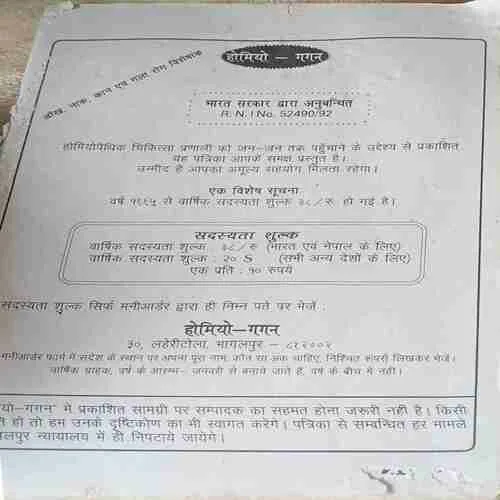 आँख, नाक, कान एवं गला रोग विशेषांक
होमियो – गगन
भारत सरकार द्वारा अनुबन्धित
R. N. I No. 52490/92
होमियोपैथिक चिकित्सा प्रणाली को जन–जन तक पहुँचाने के उद्देश्य से प्रकाशित
यह पत्रिका आपके समक्ष प्रस्तुत है।
उम्मीद है आपका अमूल्य सहयोग मिलता रहेगा।
एक विशेष सूचना
वर्ष १९९५ से वार्षिक सदस्यता शुल्क ३८/ रु हो गई है।
सदस्यता शुल्क
वार्षिक सदस्यता शुल्क : ३८/ रु (भारत एवं नेपाल के लिए)
वार्षिक सदस्यता शुल्क : २० S (सभी अन्य देशों के लिए)
एक प्रति : १० रुपये
सदस्यता शुल्क सिर्फ मनीआर्डर द्वारा ही निम्न पते पर भेजें :
होमियो–गगन
३०, लहेरीटोला, भागलपुर – ८१२००२
मनीआर्डर फार्म में संदेश के स्थान पर अपना पूरा नाम, कौन सा अंक चाहिए, निश्चित लिखकर भेजें।
वार्षिक ग्राहक, वर्ष के आरम्भ– जनवरी से बनाये जाते हैं, वर्ष के बीच में नहीं।
यो–गगन' में प्रकाशित सामग्री पर सम्पादक का सहमत होना जरूरी नहीं है। किसी
हो तो हम उनके दृष्टिकोण का भी स्वागत करेंगे। पत्रिका से सम्बन्धित हर मामले
लपुर न्यायालय में ही निपटाये जायेंगे।